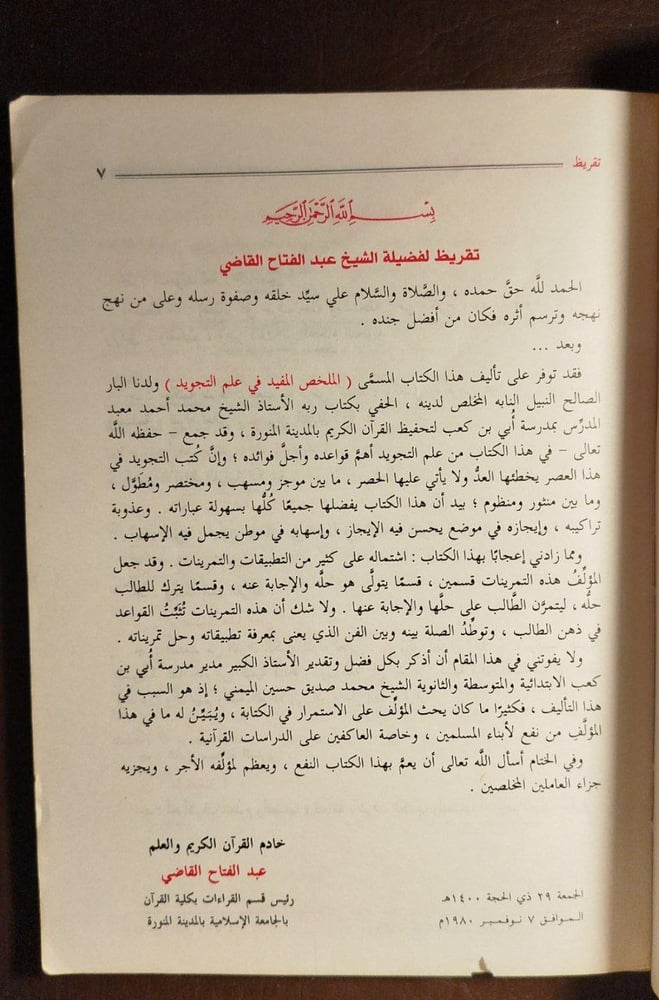 تقريظ
٧
بِسْمِ اللَّهِ الرَّحْمَٰنِ الرَّحِيمِ
تقريظ لفضيلة الشيخ عبد الفتاح القاضي
الحمد للَّه حقَّ حمده ، والصَّلاة والسَّلام علي سيِّد خلقه وصفوة رسله وعلى من نهج
نهجه وترسم أثره فكان من أفضل جنده .
وبعد ...
فقد توفر على تأليف هذا الكتاب المسمَّى ( الملخص المفيد في علم التجويد ) ولدنا البار
الصالح النبيل النابه المخلص لدينه ، الحفي بكتاب ربه الأستاذ الشيخ محمد أحمد معبد
المدرِّس بمدرسة أُبي بن كعب لتحفيظ القرآن الكريم بالمدينة المنورة ، وقد جمع – حفظه اللَّه
تعالى – في هذا الكتاب من علم التجويد أهمَّ قواعده وأجلَّ فوائده ؛ وإنَّ كُتب التجويد في
هذا العصر يخطئها العدُّ ولا يأتي عليها الحصر ، ما بين موجز ومسهب ، ومختصر ومُطَوَّل ،
وما بين منثور ومنظوم ؛ بيد أن هذا الكتاب يفضلها جميعًا كُلُّها بسهولة عباراته . وعذوبة
تراكيبه ، وإيجازه في موضع يحسن فيه الإيجاز ، وإسهابه في موطن يجمل فيه الإسهاب .
ومما زادني إعجابًا بهذا الكتاب : اشتماله على كثير من التطبيقات والتمرينات . وقد جعل
المؤلِّفُ هذه التمرينات قسمين ، قسمًا يتولَّى هو حلَّه والإجابة عنه ، وقسمًا يترك للطالب
حلَّه ، ليتمرَّن الطَّالب على حلِّها والإجابة عنها . ولا شك أن هذه التمرينات تُثَبِّتُ القواعد
في ذهن الطالب ، وتوطِّدُ الصلة بينه وبين الفن الذي يعنى بمعرفة تطبيقاته وحل تمريناته .
ولا يفوتني في هذا المقام أن أذكر بكل فضل وتقدير الأستاذ الكبير مدير مدرسة أُبي بن
كعب الابتدائية والمتوسطة والثانوية الشيخ محمد صديق حسين الميمني ؛ إذ هو السبب في
هذا التأليف ، فكثيرًا ما كان يحث المؤلِّف على الاستمرار في الكتابة ، ويُبَيِّنُ له ما في هذا
المؤلَّفِ من نفع لأبناء المسلمين ، وخاصة العاكفين على الدراسات القرآنية .
وفي الختام أسأل اللَّه تعالى أن يعمَّ بهذا الكتاب النفع ، ويعظم لمؤلِّفه الأجر ، ويجزيه
جزاء العاملين المخلصين .
خادم القرآن الكريم والعلم
عبد الفتاح القاضي
رئيس قسم القراءات بكلية القرآن
بالجامعة الإسلامية بالمدينة المنورة
الجمعة ٢٩ ذي الحجة ١٤٠٠هـ
الموافق ٧ نوفمبر ١٩٨٠م